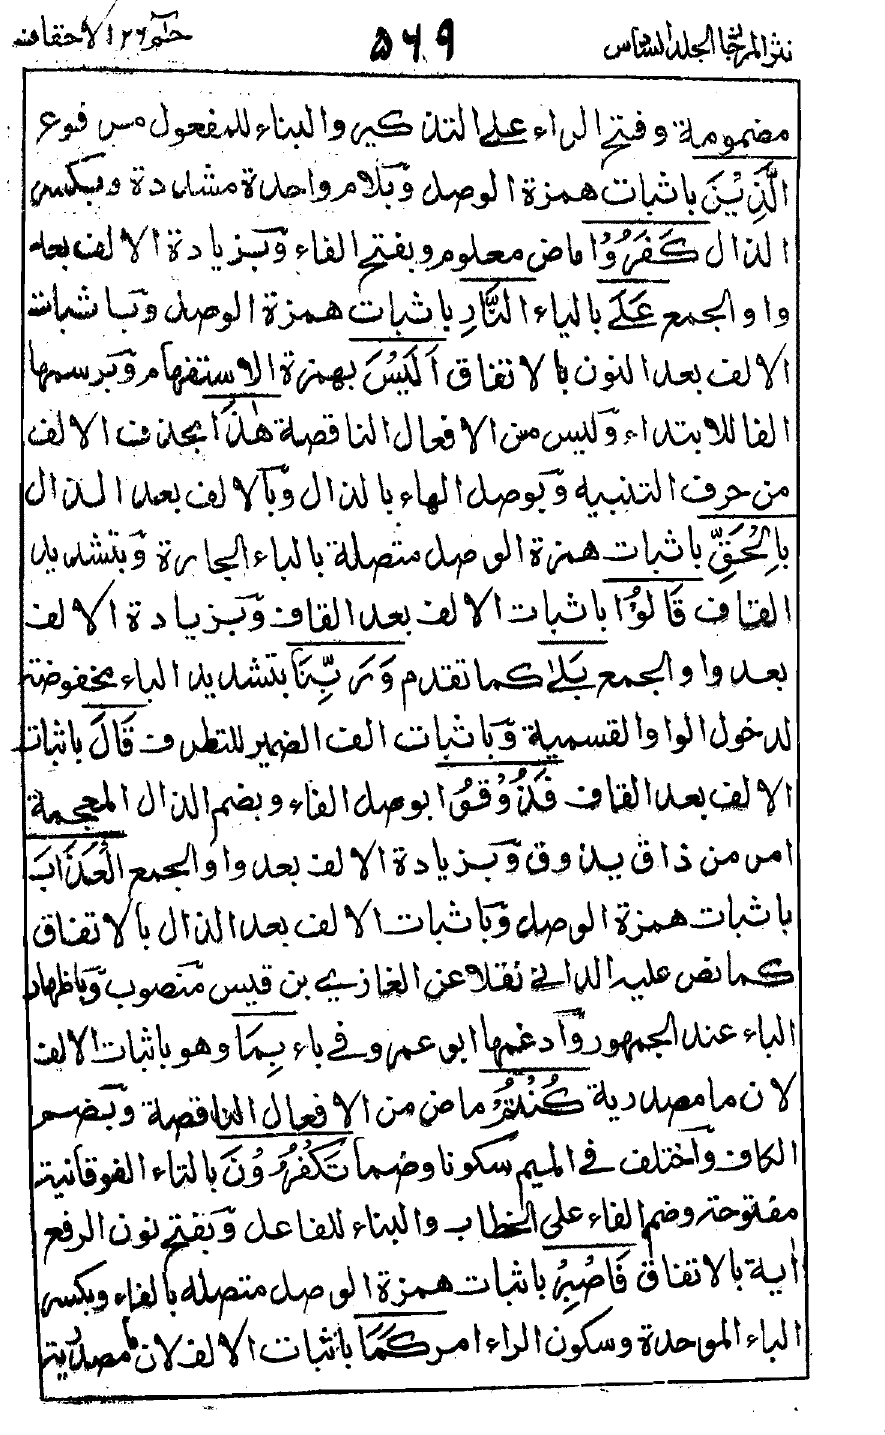 نثر المرجان الجلد السادس ٥٦٩ حٰم ٢٦ الاحقاف
مضمومة وفتح الراء على التذكير والبناء للمفعول مرفوع
الَّذِيْنَ باثبات همزة الوصل وبلام واحدة مشددة وبكسر
الذال كَفَرُوْا ماض معلوم وبفتح الفاء وبزيادة الالف بعد
واو الجمع عَلَى بالياء النَّارِ باثبات همزة الوصل وباثبات
الالف بعد النون بالاتفاق اَلَيْسَ بهمزة الاستفهام وبرسمها
الفا للابتداء وليس من الافعال الناقصة هٰذَا بحذف الالف
من حرف التنبيه وبوصل الهاء بالذال وبالالف بعد الذال
بِالْحَقِّ باثبات همزة الوصل متصلة بالباء الجارة وبتشديد
القاف قَالُوْا باثبات الالف بعد القاف وبزيادة الالف
بعد واو الجمع بَلٰى كما تقدم وَرَبِّنَا بتشديد الباء مخفوضة
لدخول الواو القسمية وباثبات الف الضمير للتطرف قَالَ باثبات
الالف بعد القاف فَذُوْقُوْا بوصل الفاء وبضم الذال المعجمة
امر من ذاق يذوق وبزيادة الالف بعد واو الجمع الْعَذَابَ
باثبات همزة الوصل وباثبات الالف بعد الذال بالاتفاق
كما نص عليه الداني نقلا عن الغازي بن قيس منصوب وباظهار
الباء عند الجمهور وادغمها ابو عمرو في باء بِمَا وهو باثبات الالف
لان ما مصدرية كُنْتُمْ ماض من الافعال الناقصة وبضم
الكاف واختلف في الميم سكونا وضما تَكْفُرُوْنَ بالتاء الفوقانية
مفتوحة وضم الفاء على الخطاب والبناء للفاعل وبفتح نون الرفع
اٰية بالاتفاق فَاصْبِرْ باثبات همزة الوصل متصلة بالفاء وبكسر
الباء الموحدة وسكون الراء امر كَمَا باثبات الالف لان ما مصدرية